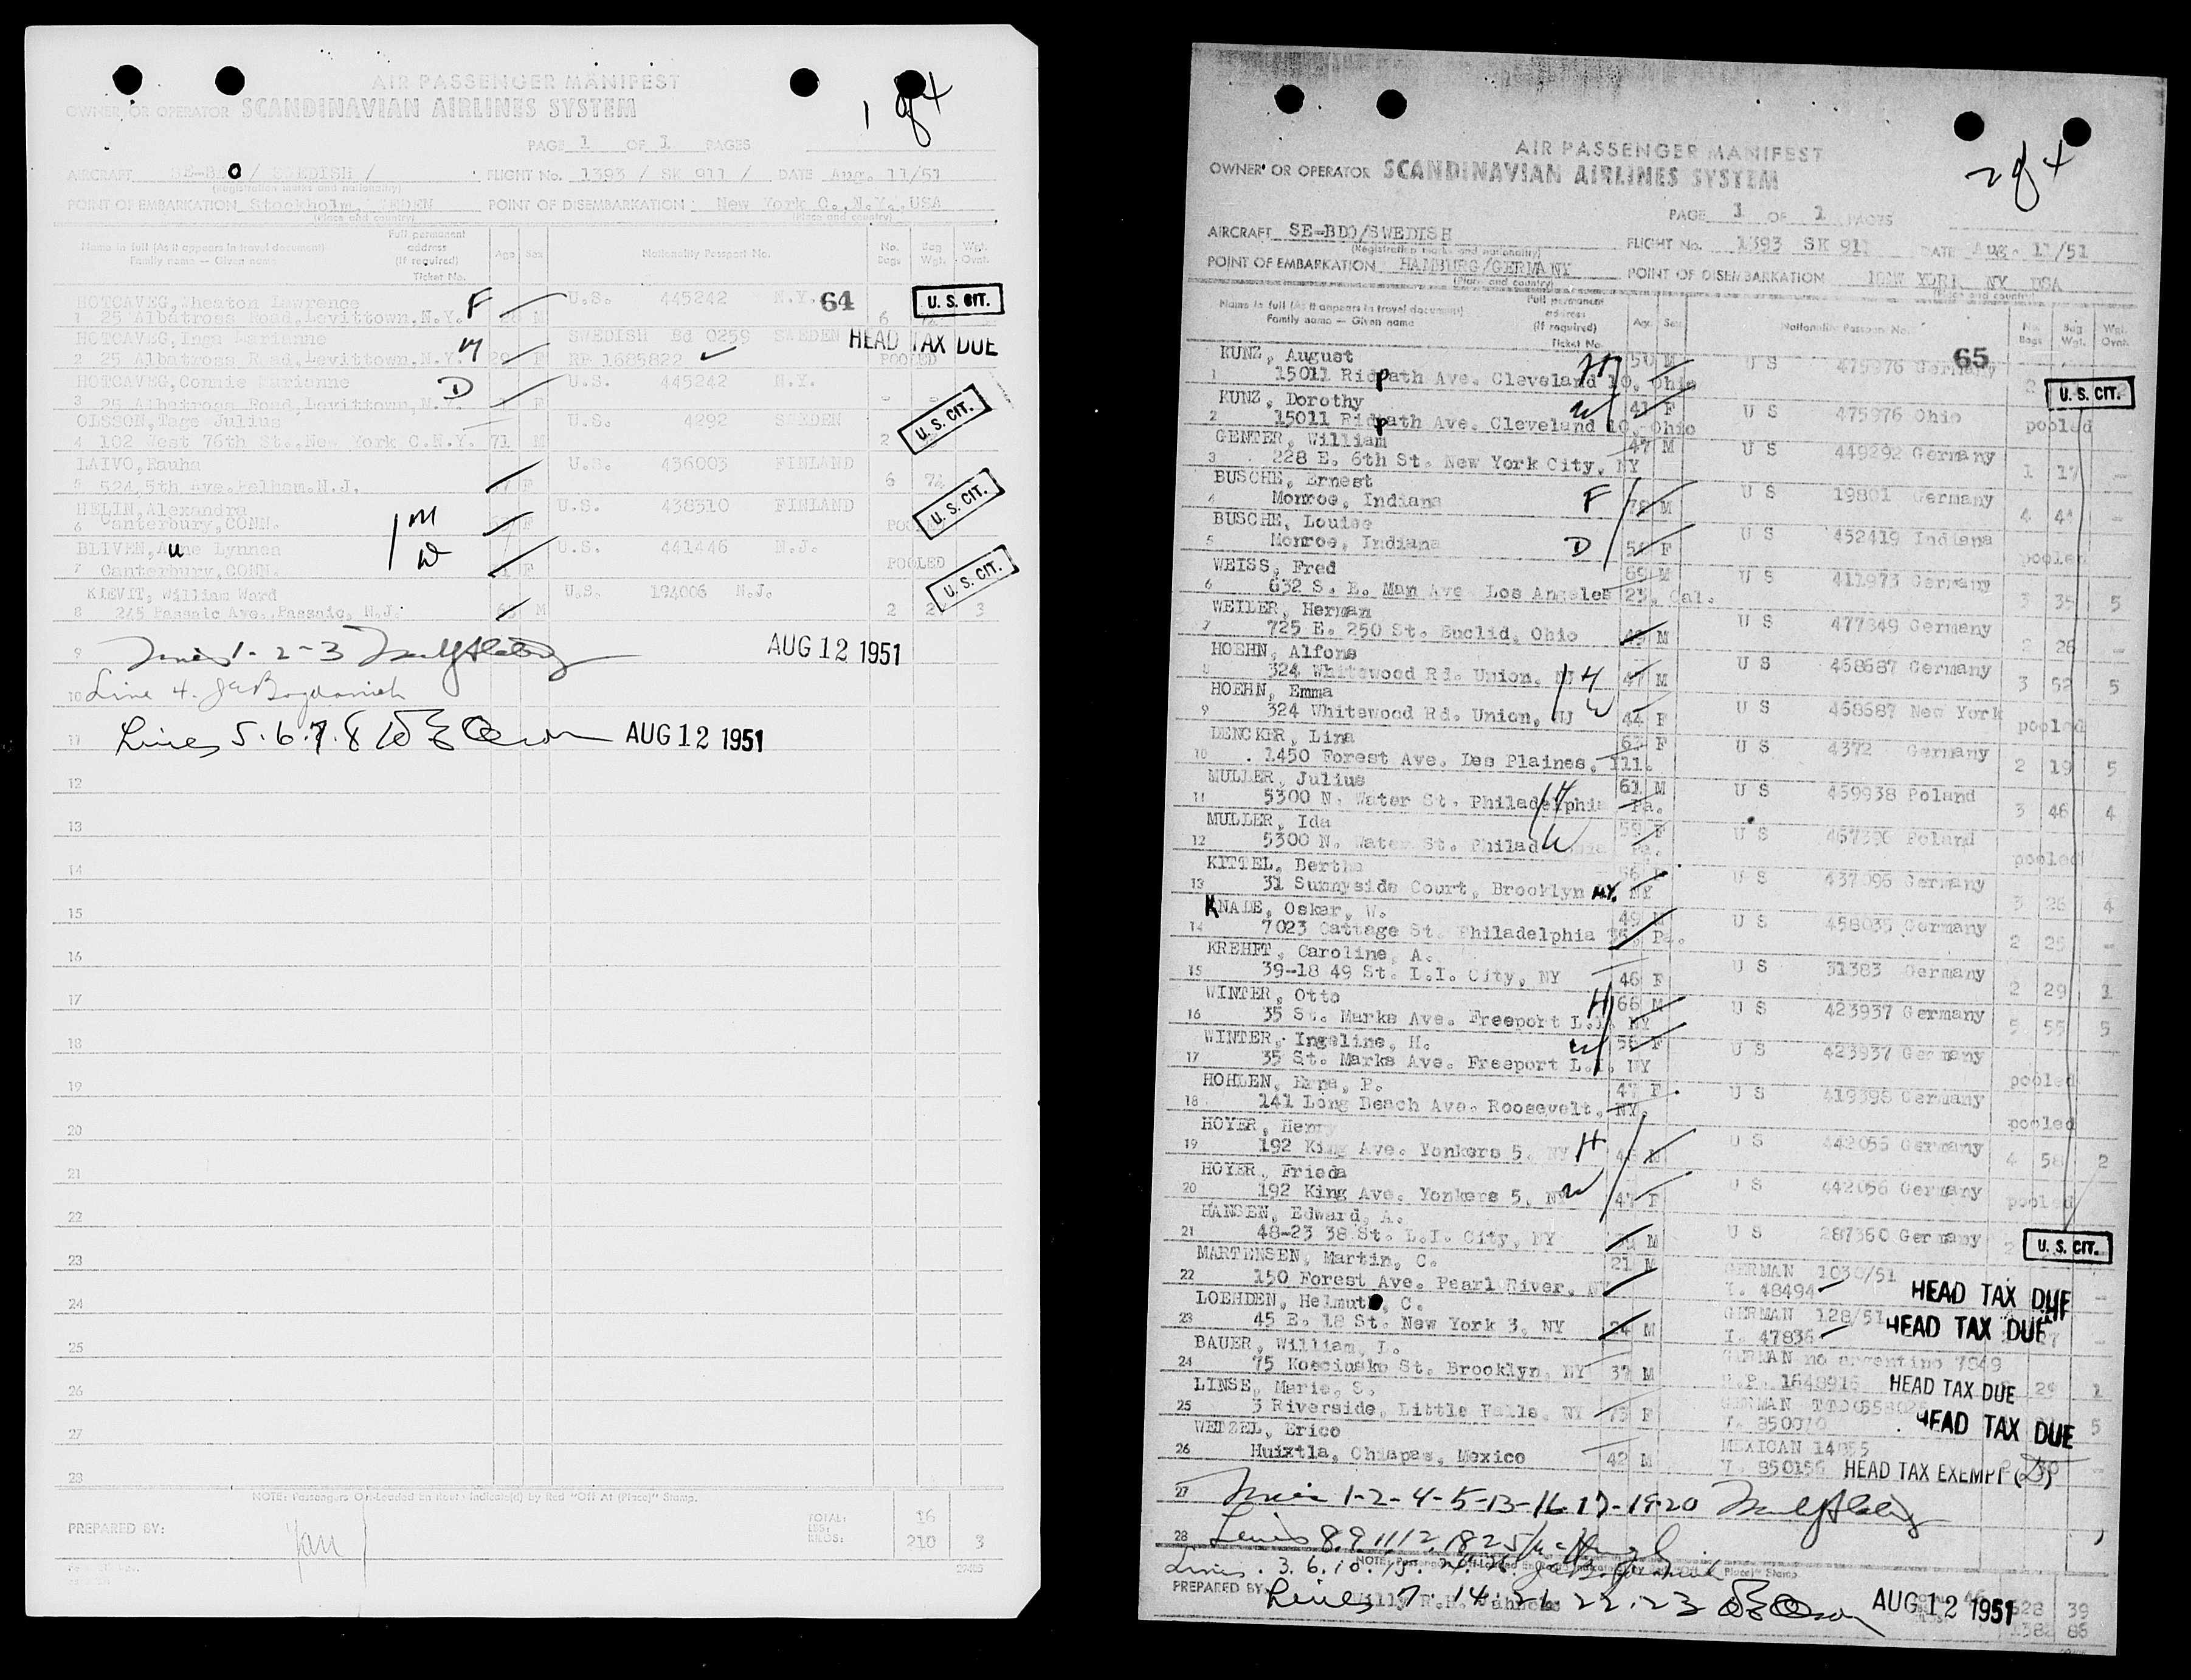 AIR PASSENGER MANIFEST
1 of 4
OWNER OR OPERATOR SCANDINAVIAN AIRLINES SYSTEM
PAGE 1 OF 1 PAGES
AIRCRAFT SE-BDO / SWEDISH / FLIGHT No. 1393 / SK 911 / DATE Aug. 11/51
(Registration marks and nationality)
POINT OF EMBARKATION Stockholm, SWEDEN POINT OF DISEMBARKATION: New York C., N.Y., USA
(Place and country) (Place and country)
Name in full (As it appears in travel document) Full permanent
Family name — Given name address
(If required)
Ticket No.
Age Sex Nationality Passport No. No. Bags Bag Wgt. Wgt. Ovnt.
HOTCAVEG, Wheaton Lawrence F U.S. 445242 N.Y. 64 U. S. CIT.
1 25 Albatross Road, Levittown, N.Y. M 6
HOTCAVEG, Inga Marianne SWEDISH Bd 0259 SWEDEN HEAD TAX DUE
2 25 Albatross Road, Levittown, N.Y. M 29 F RP 1685822 POOLED
HOTCAVEG, Connie Marianne D U.S. 445242 N.Y.
3 25 Albatross Road, Levittown, N.Y. F
OLSSON, Tage Julius U.S. 4292 SWEDEN U. S. CIT.
4 102 West 76th St. New York C.N.Y. 71 M 2
LAIVO, Rauha U.S. 436003 FINLAND
5 524, 5th Ave. Pelham, N.J. F 6 74 U. S. CIT.
HELIN, Alexandra M U.S. 438310 FINLAND
6 Canterbury, CONN. F POOLED
BLIVEN, Anne Lynnea D U.S. 441446 N.J.
7 Canterbury, CONN. F POOLED U. S. CIT.
KIEVIT, William Ward U.S. 194006 N.J.
8 245 Passaic Ave., Passaic, N.J. M 2 3
9 Lines 1-2-3 AUG 12 1951
10 Line 4. J. Bogdanich
11 Lines 5.6.7.8 AUG 12 1951
12
13
14
15
16
17
18
19
20
21
22
23
24
25
26
27
28
NOTE: Passengers Off-Loaded En Route Indicate(d) by Red "Off At (Place)" Stamp.
PREPARED BY: TOTAL: 16
LBS:
KILOS: 210 3
AIR PASSENGER MANIFEST
2 of 4
OWNER OR OPERATOR SCANDINAVIAN AIRLINES SYSTEM
PAGE 1 OF 1 PAGES
AIRCRAFT SE-BDO/SWEDISH FLIGHT No. 1393 SK 911 DATE Aug. 11/51
(Registration marks and nationality)
POINT OF EMBARKATION HAMBURG/GERMANY POINT OF DISEMBARKATION NEW YORK NY USA
(Place and country) (Place and country)
Name in full (As it appears in travel document) Full permanent
Family name — Given name address
(If required)
Ticket No.
Age Sex Nationality Passport No. No. Bags Bag Wgt. Wgt. Ovnt.
KUNZ, August H 50 M U S 475976 Germany 65
1 15011 Ridpath Ave. Cleveland 10, Ohio 2 U. S. CIT.
KUNZ, Dorothy W 41 F U S 475976 Ohio
2 15011 Ridpath Ave. Cleveland 10, Ohio pooled
GENTER, William 47 M U S 449292 Germany
3 228 E. 6th St. New York City, NY 1 17 -
BUSCHE, Ernest U S 19801 Germany
4 Monroe, Indiana F 78 M 4 44 -
BUSCHE, Louise U S 452419 Indiana
5 Monroe, Indiana D 54 F pooled
WEISS, Fred 69 M U S 411973 Germany
6 632 S. E. Man Ave Los Angeles 23, Cal. 3 35 5
WEILER, Herman U S 477349 Germany
7 725 E. 250 St. Euclid, Ohio M 2 26 -
HOEHN, Alfons U S 458687 Germany
8 324 Whitewood Rd. Union, NJ H 47 M 3 52 5
HOEHN, Emma U S 458687 New York
9 324 Whitewood Rd. Union, NJ W 44 F pooled
DENCKER, Lina F U S 4372 Germany
10 1450 Forest Ave. Des Plaines, Ill. 2 19 5
MULLER, Julius 61 M U S 459938 Poland
11 5300 N. Water St. Philadelphia Pa. H 3 46 4
MULLER, Ida 59 F U S Poland
12 5300 N. Water St. Philadelphia Pa. W pooled
KITTEL, Bertha 56 F U S 437096 Germany
13 31 Sunnyside Court, Brooklyn NY. NY 3 26 4
KNADE, Oskar, W. 49 M U S 458035 Germany
14 7023 Cattage St. Philadelphia Pa. 2 25 -
KREHFT, Caroline, A. U S 31383 Germany
15 39-18 49 St. L.I. City, NY 46 F 2 29 1
WINTER, Otto H 66 M U S 423937 Germany
16 35 St. Marks Ave. Freeport L.I. NY 5 55 5
WINTER, Ingeline, H. W 56 F U S 423937 Germany
17 35 St. Marks Ave. Freeport L.I. NY pooled
HOHLEN, Erna, P. 47 F U S 419395 Germany
18 141 Long Beach Ave. Roosevelt, NY. pooled
HOYER, Henry U S 442055 Germany
19 192 King Ave. Yonkers 5, NY H M 4 58 2
HOYER, Frieda U S 442056 Germany
20 192 King Ave. Yonkers 5, NY W 47 F pooled
HANSEN, Edward, A. U S 287360 Germany
21 48-23 38 St. L.I. City, NY M 2 U. S. CIT.
MARTENSEN, Martin, C. 21 M GERMAN 1036/51
22 150 Forest Ave. Pearl River, NY I. 48494 HEAD TAX DUE -
LOEHDEN, Helmut, C. GERMAN 128/51
23 45 E. 18 St. New York 3, NY 24 M I. 47836 HEAD TAX DUE 27 -
BAUER, William, I. GERMAN no argentino 7849
24 75 Kosciusko St. Brooklyn, NY 37 M 1648916 HEAD TAX DUE 29 1
LINSE, Marie, S. GERMAN
25 3 Riverside, Little Falls, NY 73 F V. 850070 HEAD TAX DUE 5
WETZEL, Erico MEXICAN
26 Huixtla, Chiapas, Mexico 42 M V. 850156 HEAD TAX EXEMPT -
27 Lines 1-2-4-5-13-16-17-19-20
28 Lines 8.9.11.12.18.25
Lines 3.6.10.15.
PREPARED BY: Lines 7. 14. 21. 22. 23 AUG 12 1951
528 39
1382 86